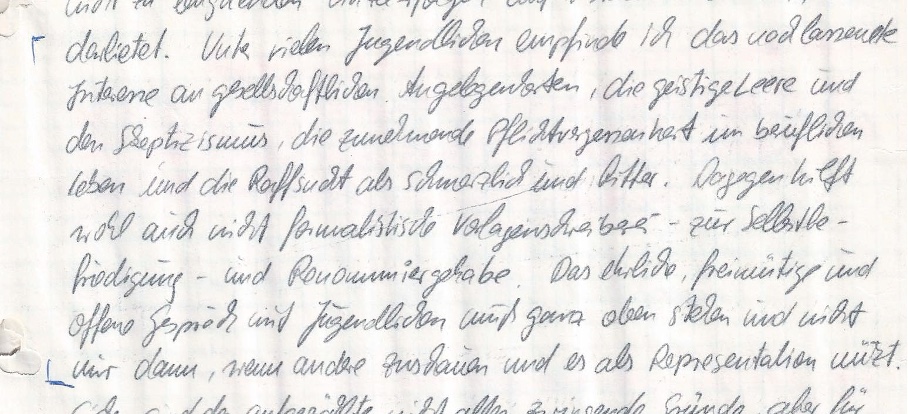 darbietet. Unter vielen Jugendlichen empfinde ich das nachlassende
Interesse an gesellschaftlichen Angelegenheiten, die geistige Leere und
den Skeptizismus, die zunehmende Pflichtvergessenheit im beruflichen
Leben und die Raffsucht als schmerzlich und bitter. Dagegen hilft
wohl auch nicht formalistische Vorlagenschreiberei - zur Selbstbe-
friedigung - und Renommiergehabe. Das ehrliche, freimütige und
offene Gespräch mit Jugendlichen muß ganz oben stehen und nicht
nur dann, wenn andere zuschauen und es als Representation nützt.